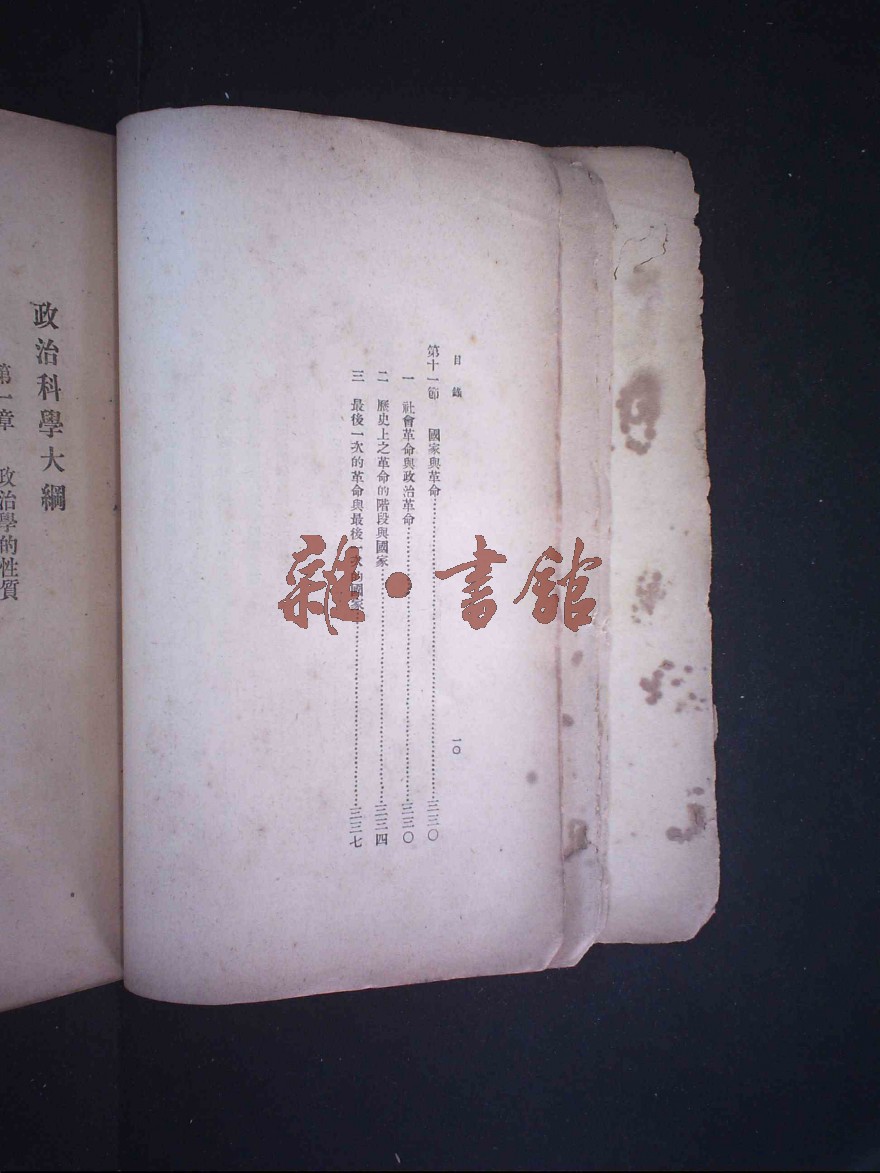 目錄
第十一節　國家與革命……三三〇
一　社會革命與政治革命……三三〇
二　歷史上之革命的階段與國家……三三四
三　最後一次的革命與最後一次的國家……三三七
一〇
政治科學大綱
第一章　政治學的性質
雜·書館